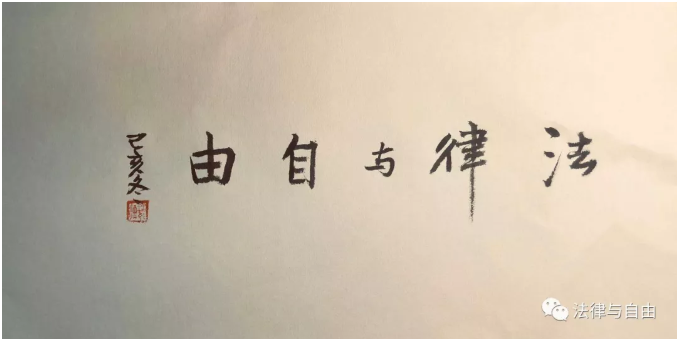 法律与自由
己亥冬
法律与自由